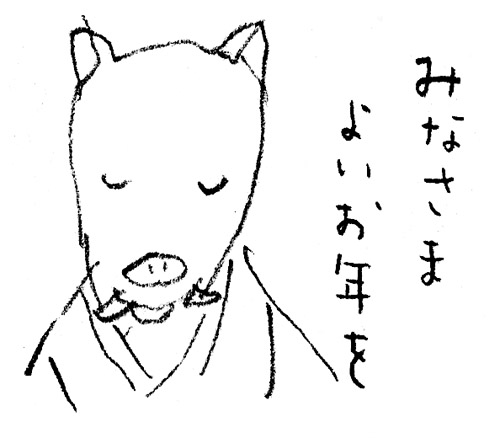 みなさま
よいお年を